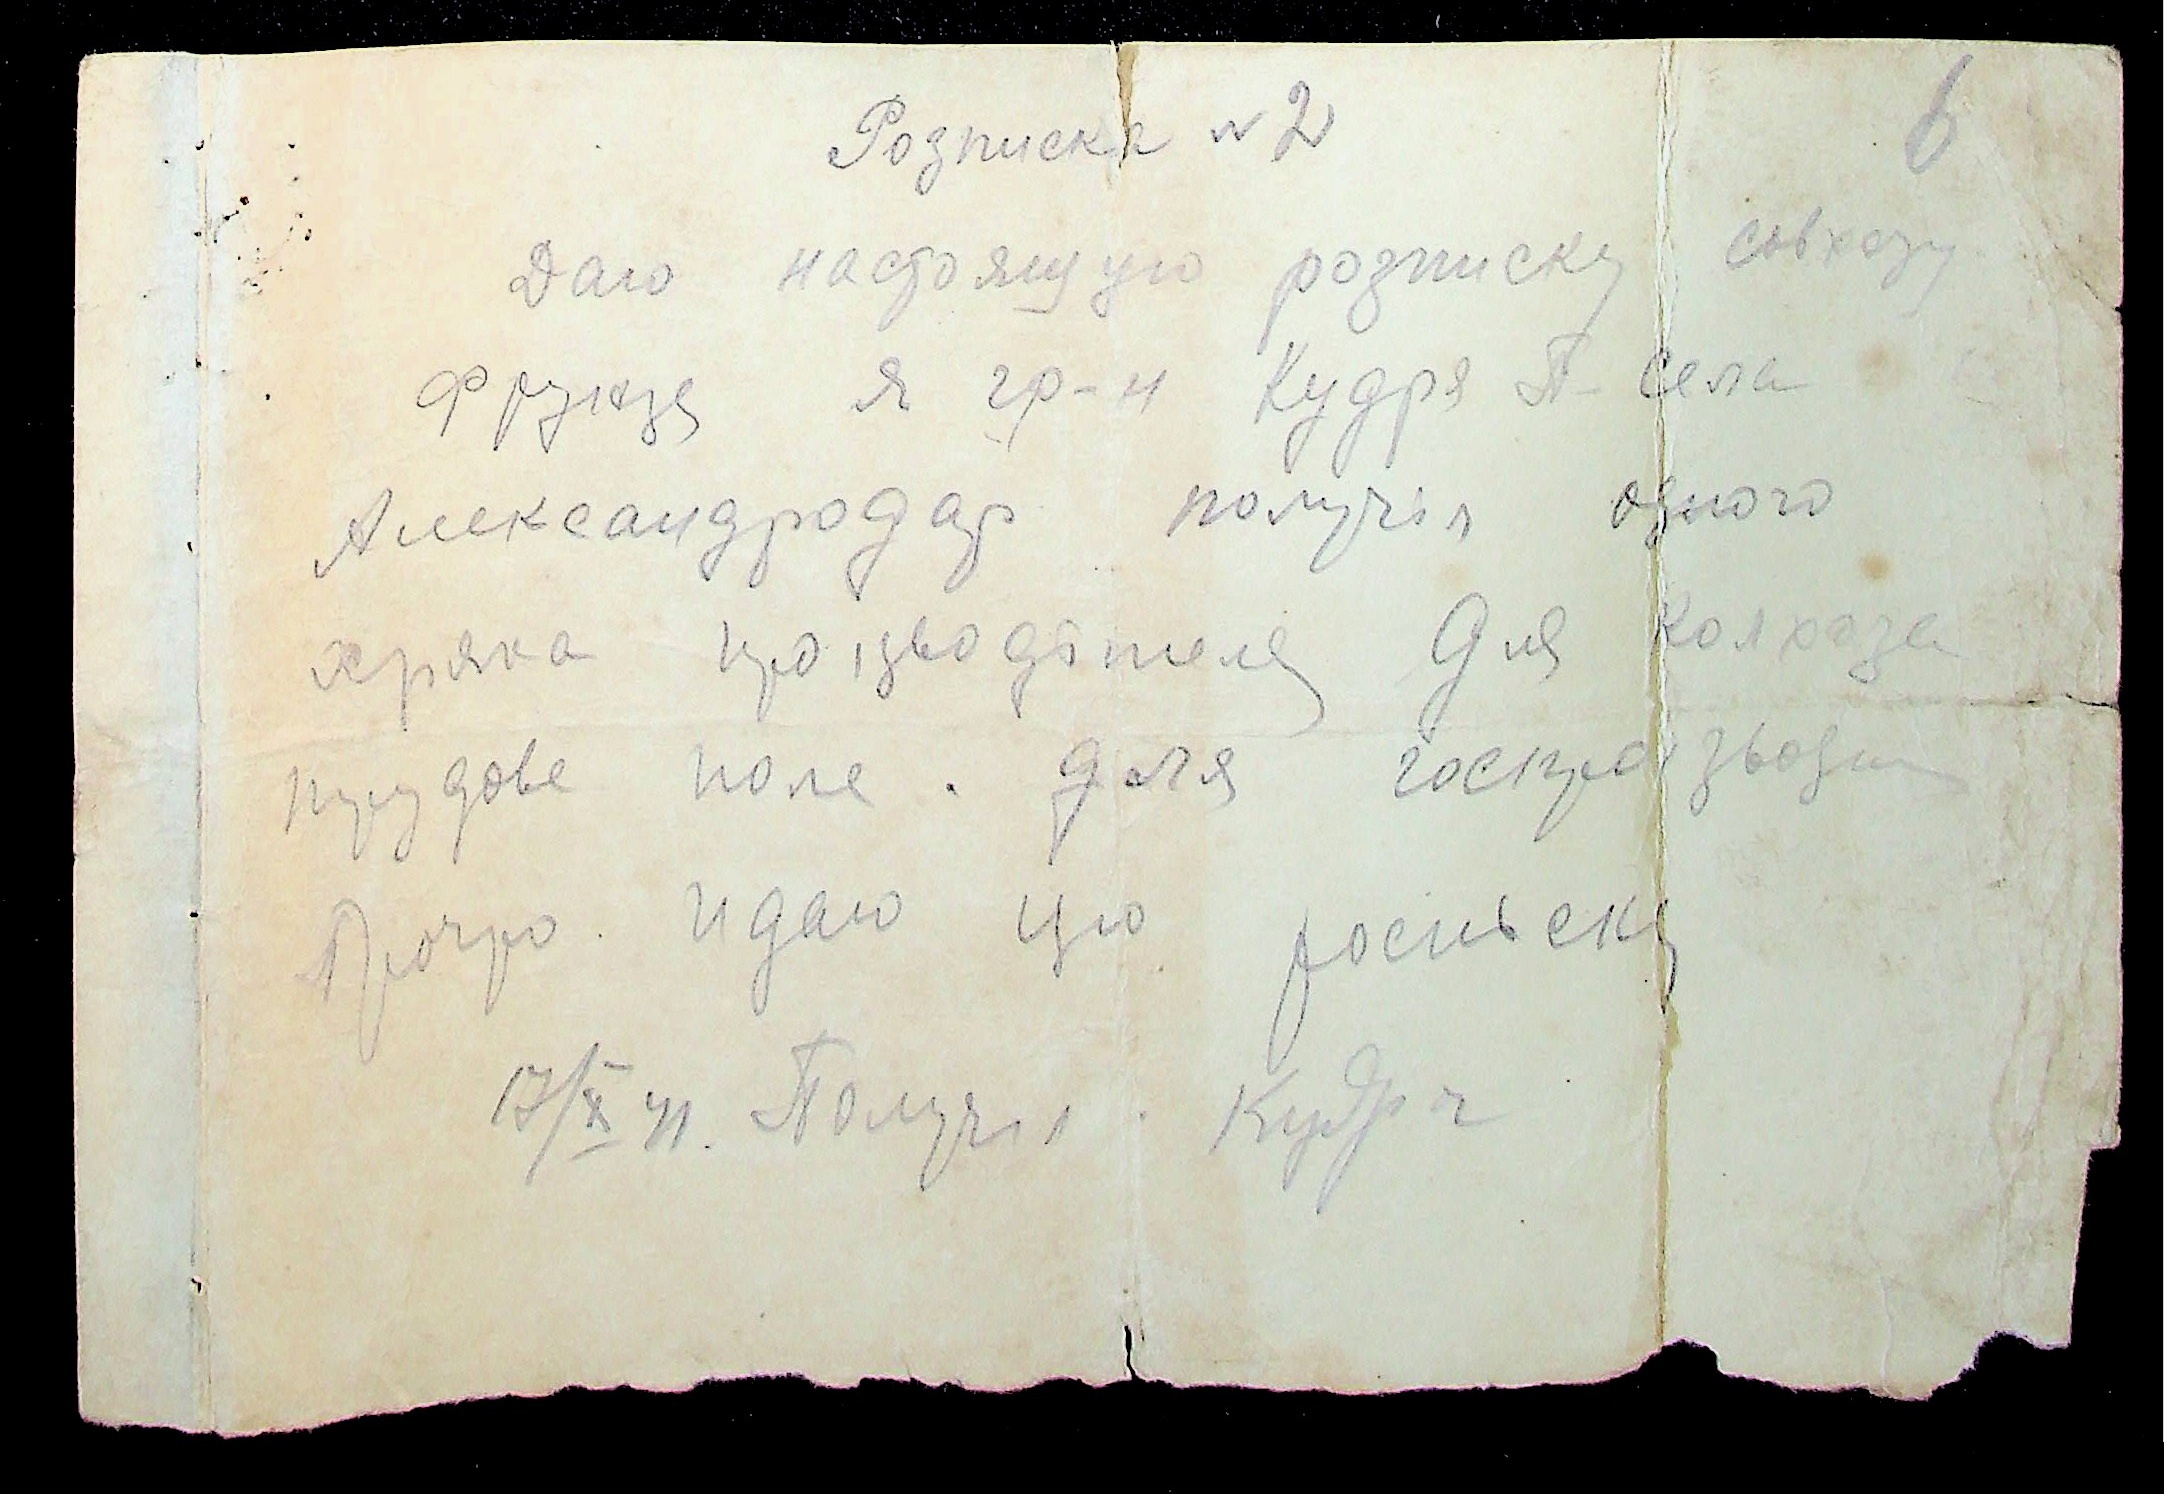 6
Розписка № 2
Даю настоящую розписку совхозу
Фрунзе я гр-н Кудря П- села
Александродар получiл одного
хряка проiзводiтеля для колхоза
трудове поле. для
и даю цю роспьску
17/X 41. Получiл. Кудря